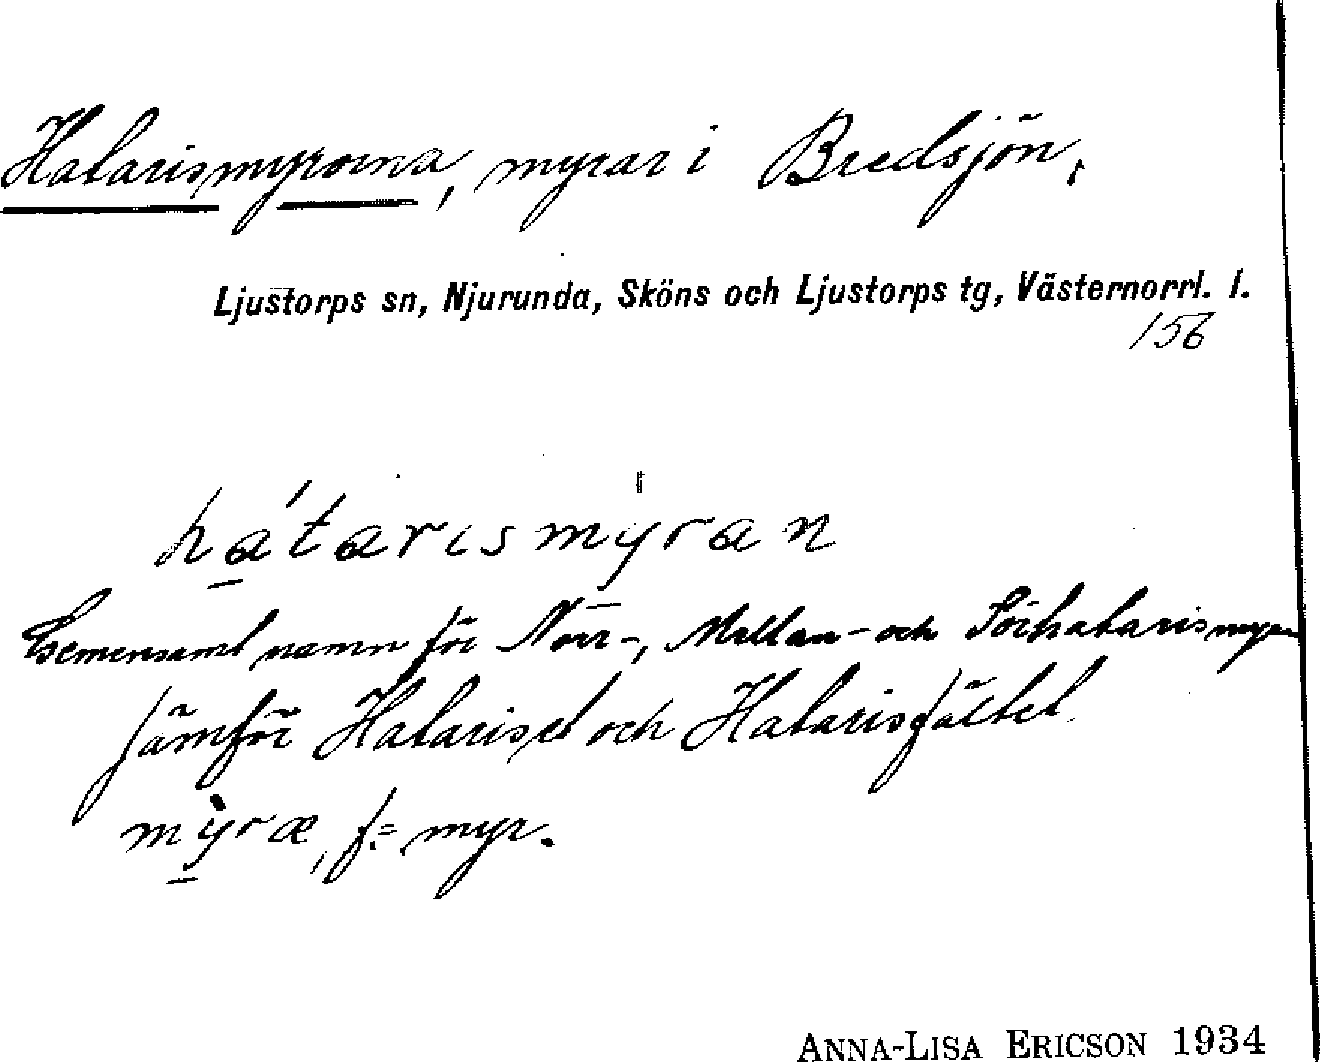 Hatarismyrorna, myrar i Bredsjön,
Ljustorps sn, Njurunda, Sköns och Ljustorps tg, Västernorrl. l.
156
hátarismyran
Gemensamt namn för Norr-, Mellan- och Sörhatarismyran
jämför Hatariset och Hatarisfältet
myræ, f= myr.
ANNA-LISA ERICSON 1934